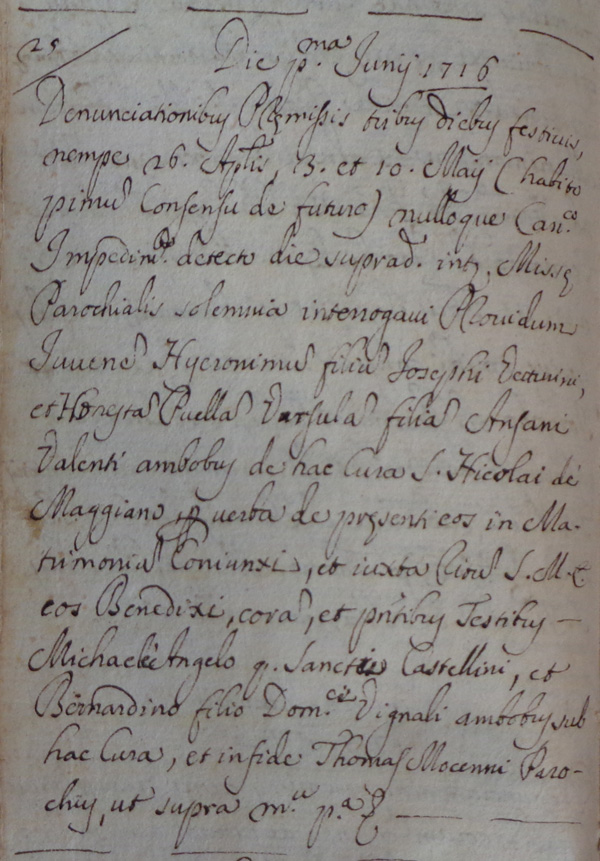 25 Die p.ma Junij 1716
Denunciationibus Premissis tribus diebus festivis,
nempe 26. Aplis, 3. et 10. Maij (habito
primu Consensu de futuro) nulloque Can.co
Impedim.to detecto die suprad. inter Misse
Parochialis solemnia interrogavi Providum
Juvene Hyeronimu filiu Josephi Vetturini,
et Honesta Puella Vursula filia Ansani
Valenti ambobus de hac Cura S. Nicolai de
Maggiano per verba de presenti eos in Ma-
trimoniu Coniunxi, et iuxta Ritu S. M. E.
eos Benedixi, cora, et pntibus Testibus —
Michaele Angelo q. Sancti Castellini, et
Bernardino filio Dom.ci Vignali ambobus sub
hac Cura, et in fide Thomas Mocenni Paro-
chus, ut supra m.u p.a